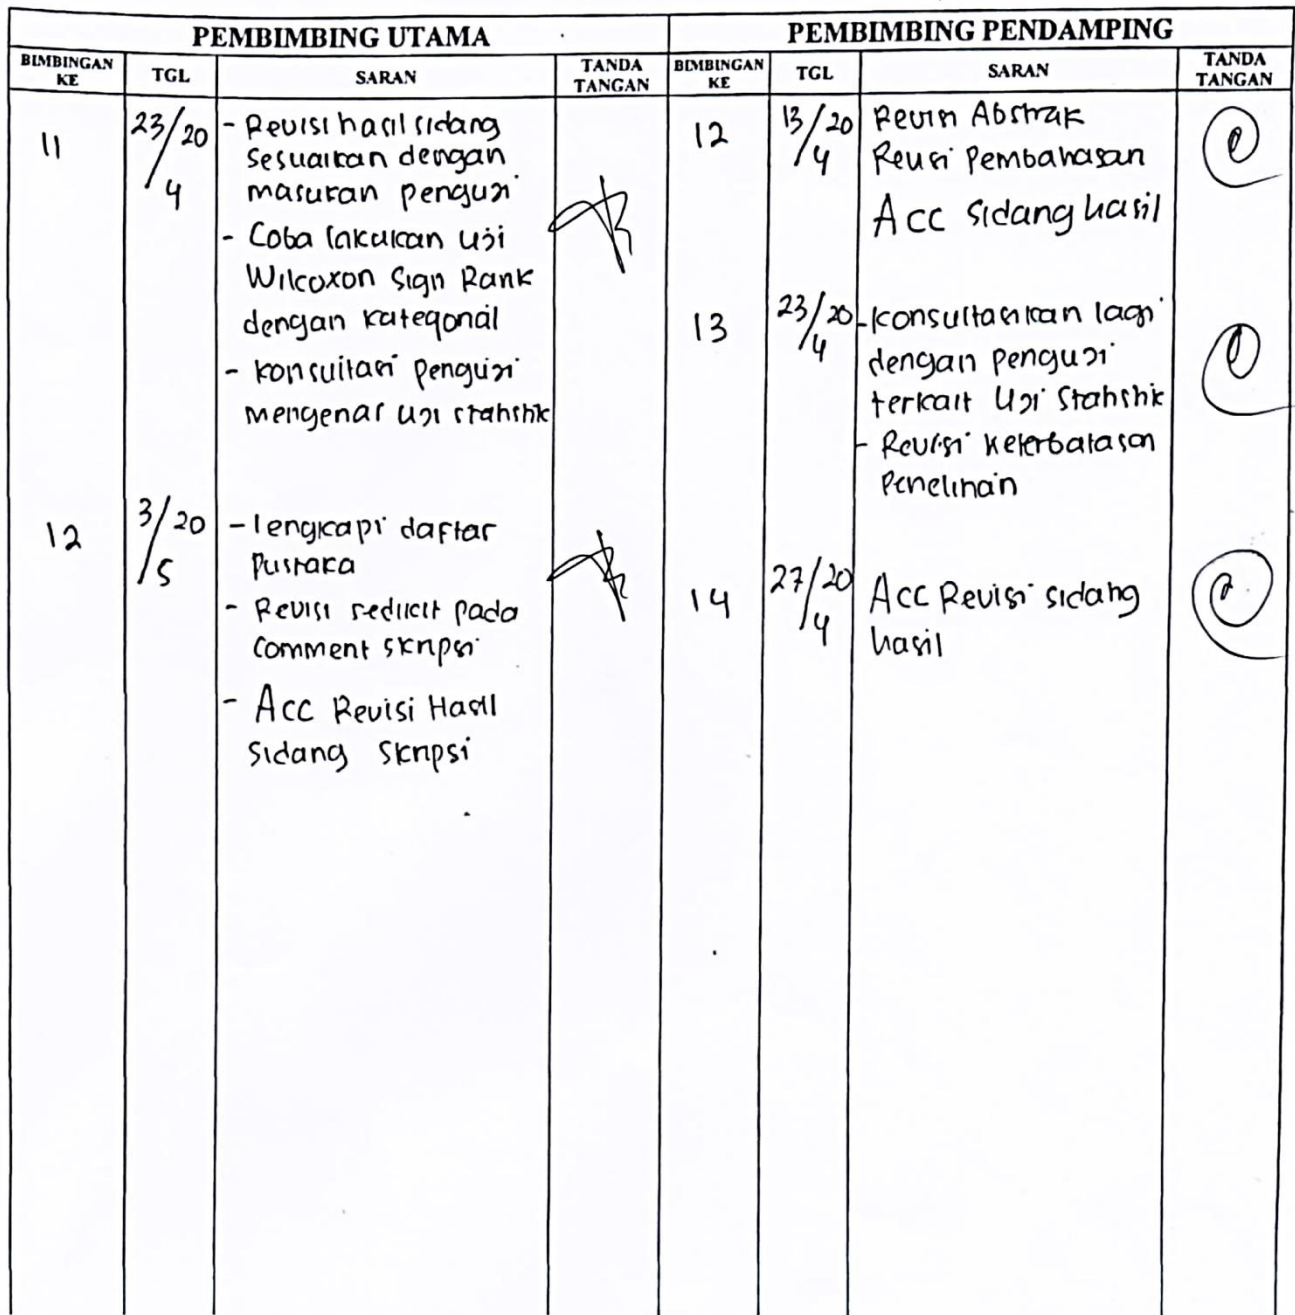 PEMBIMBING UTAMA
BIMBINGAN KE
TGL
SARAN
TANDA TANGAN
11
23/20
/4
- Revisi hasil sidang
sesuaikan dengan
masukan penguji
- Coba lakukan uji
Wilcoxon Sign Rank
dengan kategorial
- konsultasi penguji
mengenai uji statistik
12
3/20
/5
- lengkapi daftar
Pustaka
- Revisi sedikit pada
Comment skripsi
- Acc Revisi Hasil
Sidang Skripsi
PEMBIMBING PENDAMPING
BIMBINGAN KE
TGL
SARAN
TANDA TANGAN
12
13/20
/4
Revisi Abstrak
Revisi Pembahasan
Acc Sidang hasil
13
23/20
/4
- konsultasikan lagi
dengan penguji
terkait Uji Statistik
- Revisi Keterbatasan
Penelitian
14
27/20
/4
Acc Revisi sidang
hasil